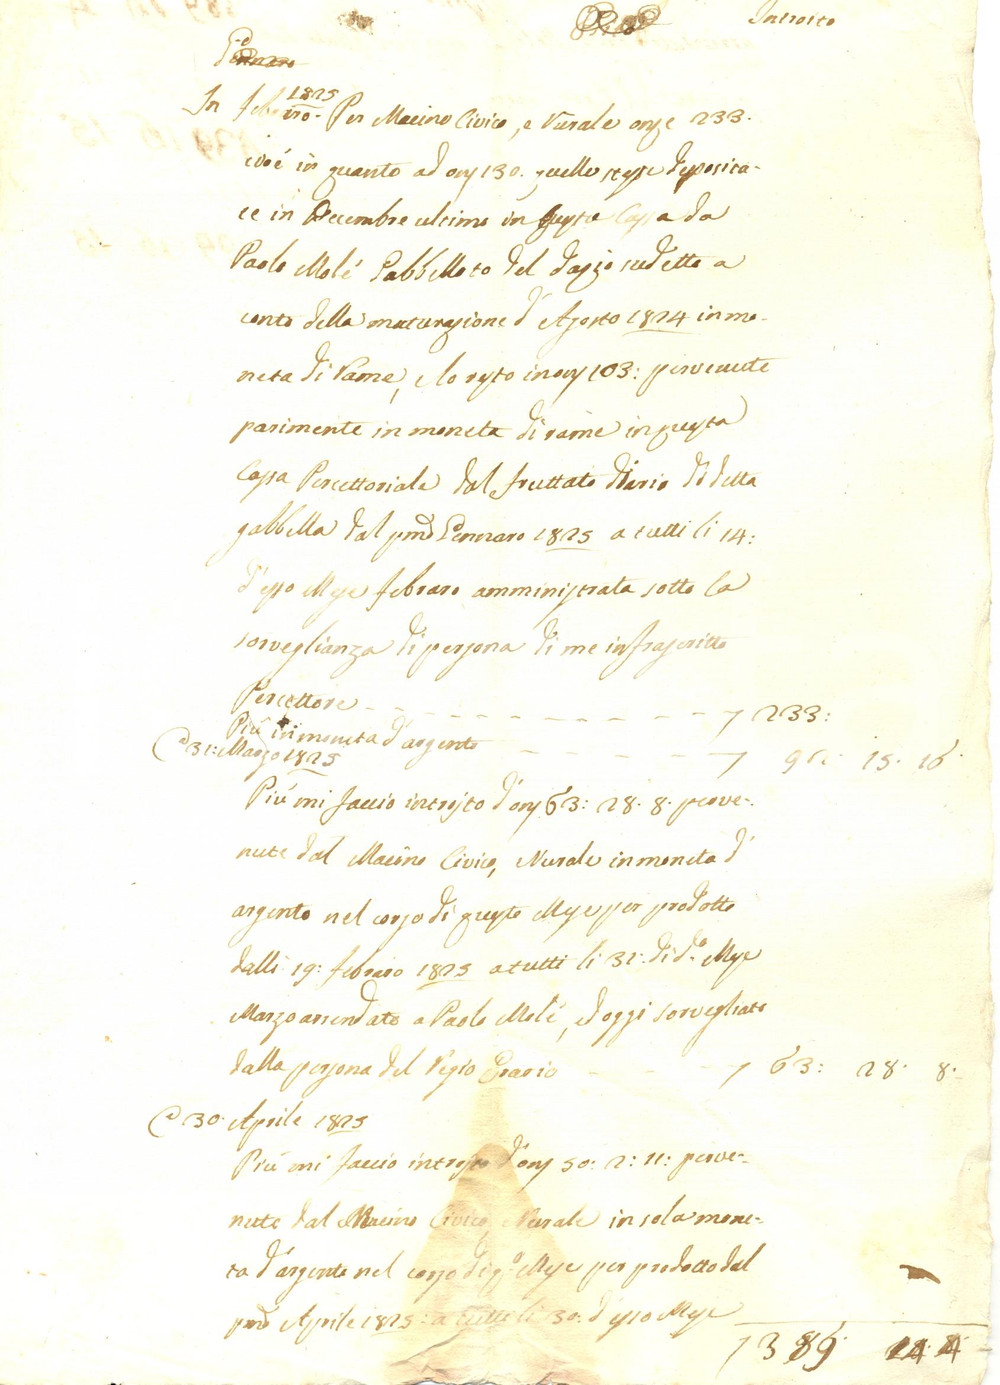 Introito
Gennaro
In febraro 1825 Per Macino Civico, e Rurale onze 233.
cioè in quanto ad onz 130. quelle stesse deposita-
te in Decembre ultimo in questa Cassa da
Paolo Molé Gabbelloto del dazio sudetto a
conto della maturazione d'Agosto 1824 in mo-
neta di rame, e lo resto in onz 103: pervenute
parimente in moneta di rame in questa
Cassa Percettoriale dal fruttato diario di detta
gabbella dal pmo Gennaro 1825 a tutti li 14:
d'esso Mese febraro amministrata sotto la
sorveglianza di persona di me infrascritto
Percettore - - - - - - - - 7 233:
Più in moneta d'argento - - - - 7 15. 16.
31: Marzo 1825
Più mi faccio introito d'onz 63: 28. 8. perve-
nute dal Macino Civico, e Rurale in moneta d'
argento nel corso di questo Mese per prodotto
dalli 19: febraro 1825 a tutti li 31: di do. Mese
Marzo arrendato a Paolo Molé, ed oggi sorvegliato
dalla persona del Regio Erario - - - 7 63: 28. 8.
30. Aprile 1825
Più mi faccio introito d'onz 50: 2: 11: perve-
nute dal Macino Civico, e Rurale in sola mone-
ta d'argento nel corso di qo. Mese per prodotto dal
pmo Aprile 1825: a tutti li 30: d'esso Mese
7 389. 14. 4.